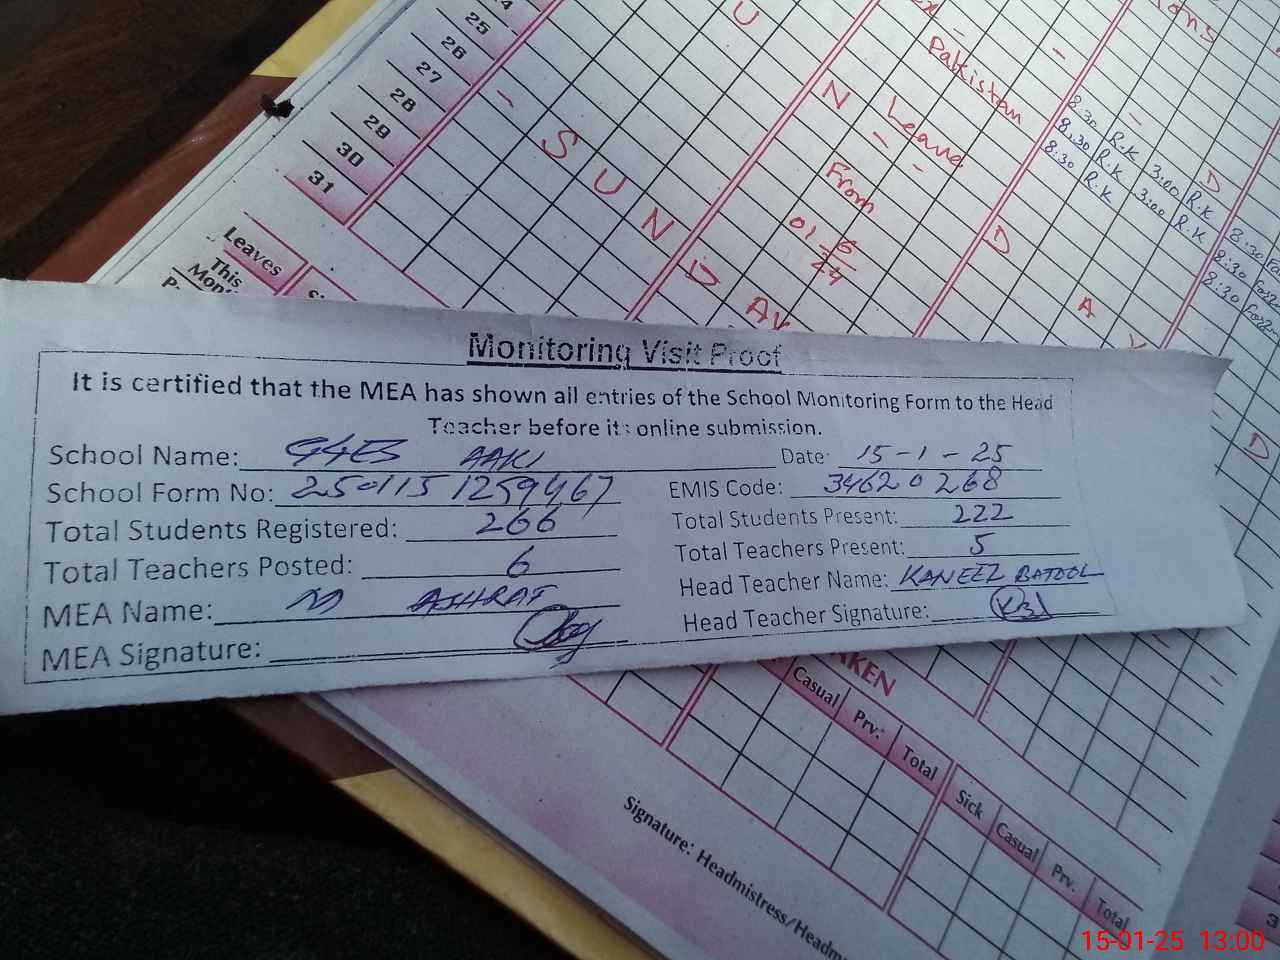 24
25
26
27
28
29
30
31
U
N
SUNDAY
Pakistan
Leave
From
01
D
A
8:30 R.K 3:00 R.K
8:30 R.K 3:00 R.K
8:30 R.K
D
8:30
8:30
8:30
D
Leaves
This
Monitoring Visit Proof
It is certified that the MEA has shown all entries of the School Monitoring Form to the Head
Teacher before its online submission.
School Name: AAKI Date: 15-1-25
School Form No: 2501151259467 EMIS Code: 34620268
Total Students Registered: 266 Total Students Present: 222
Total Teachers Posted: 6 Total Teachers Present: 5
MEA Name: M ASHRAF Head Teacher Name: KANEEZ BATOOL
MEA Signature: Head Teacher Signature:
Casual Prv. Total Sick Casual Prv. Total
Signature: Headmistress/Headm
15-01-25 13:00